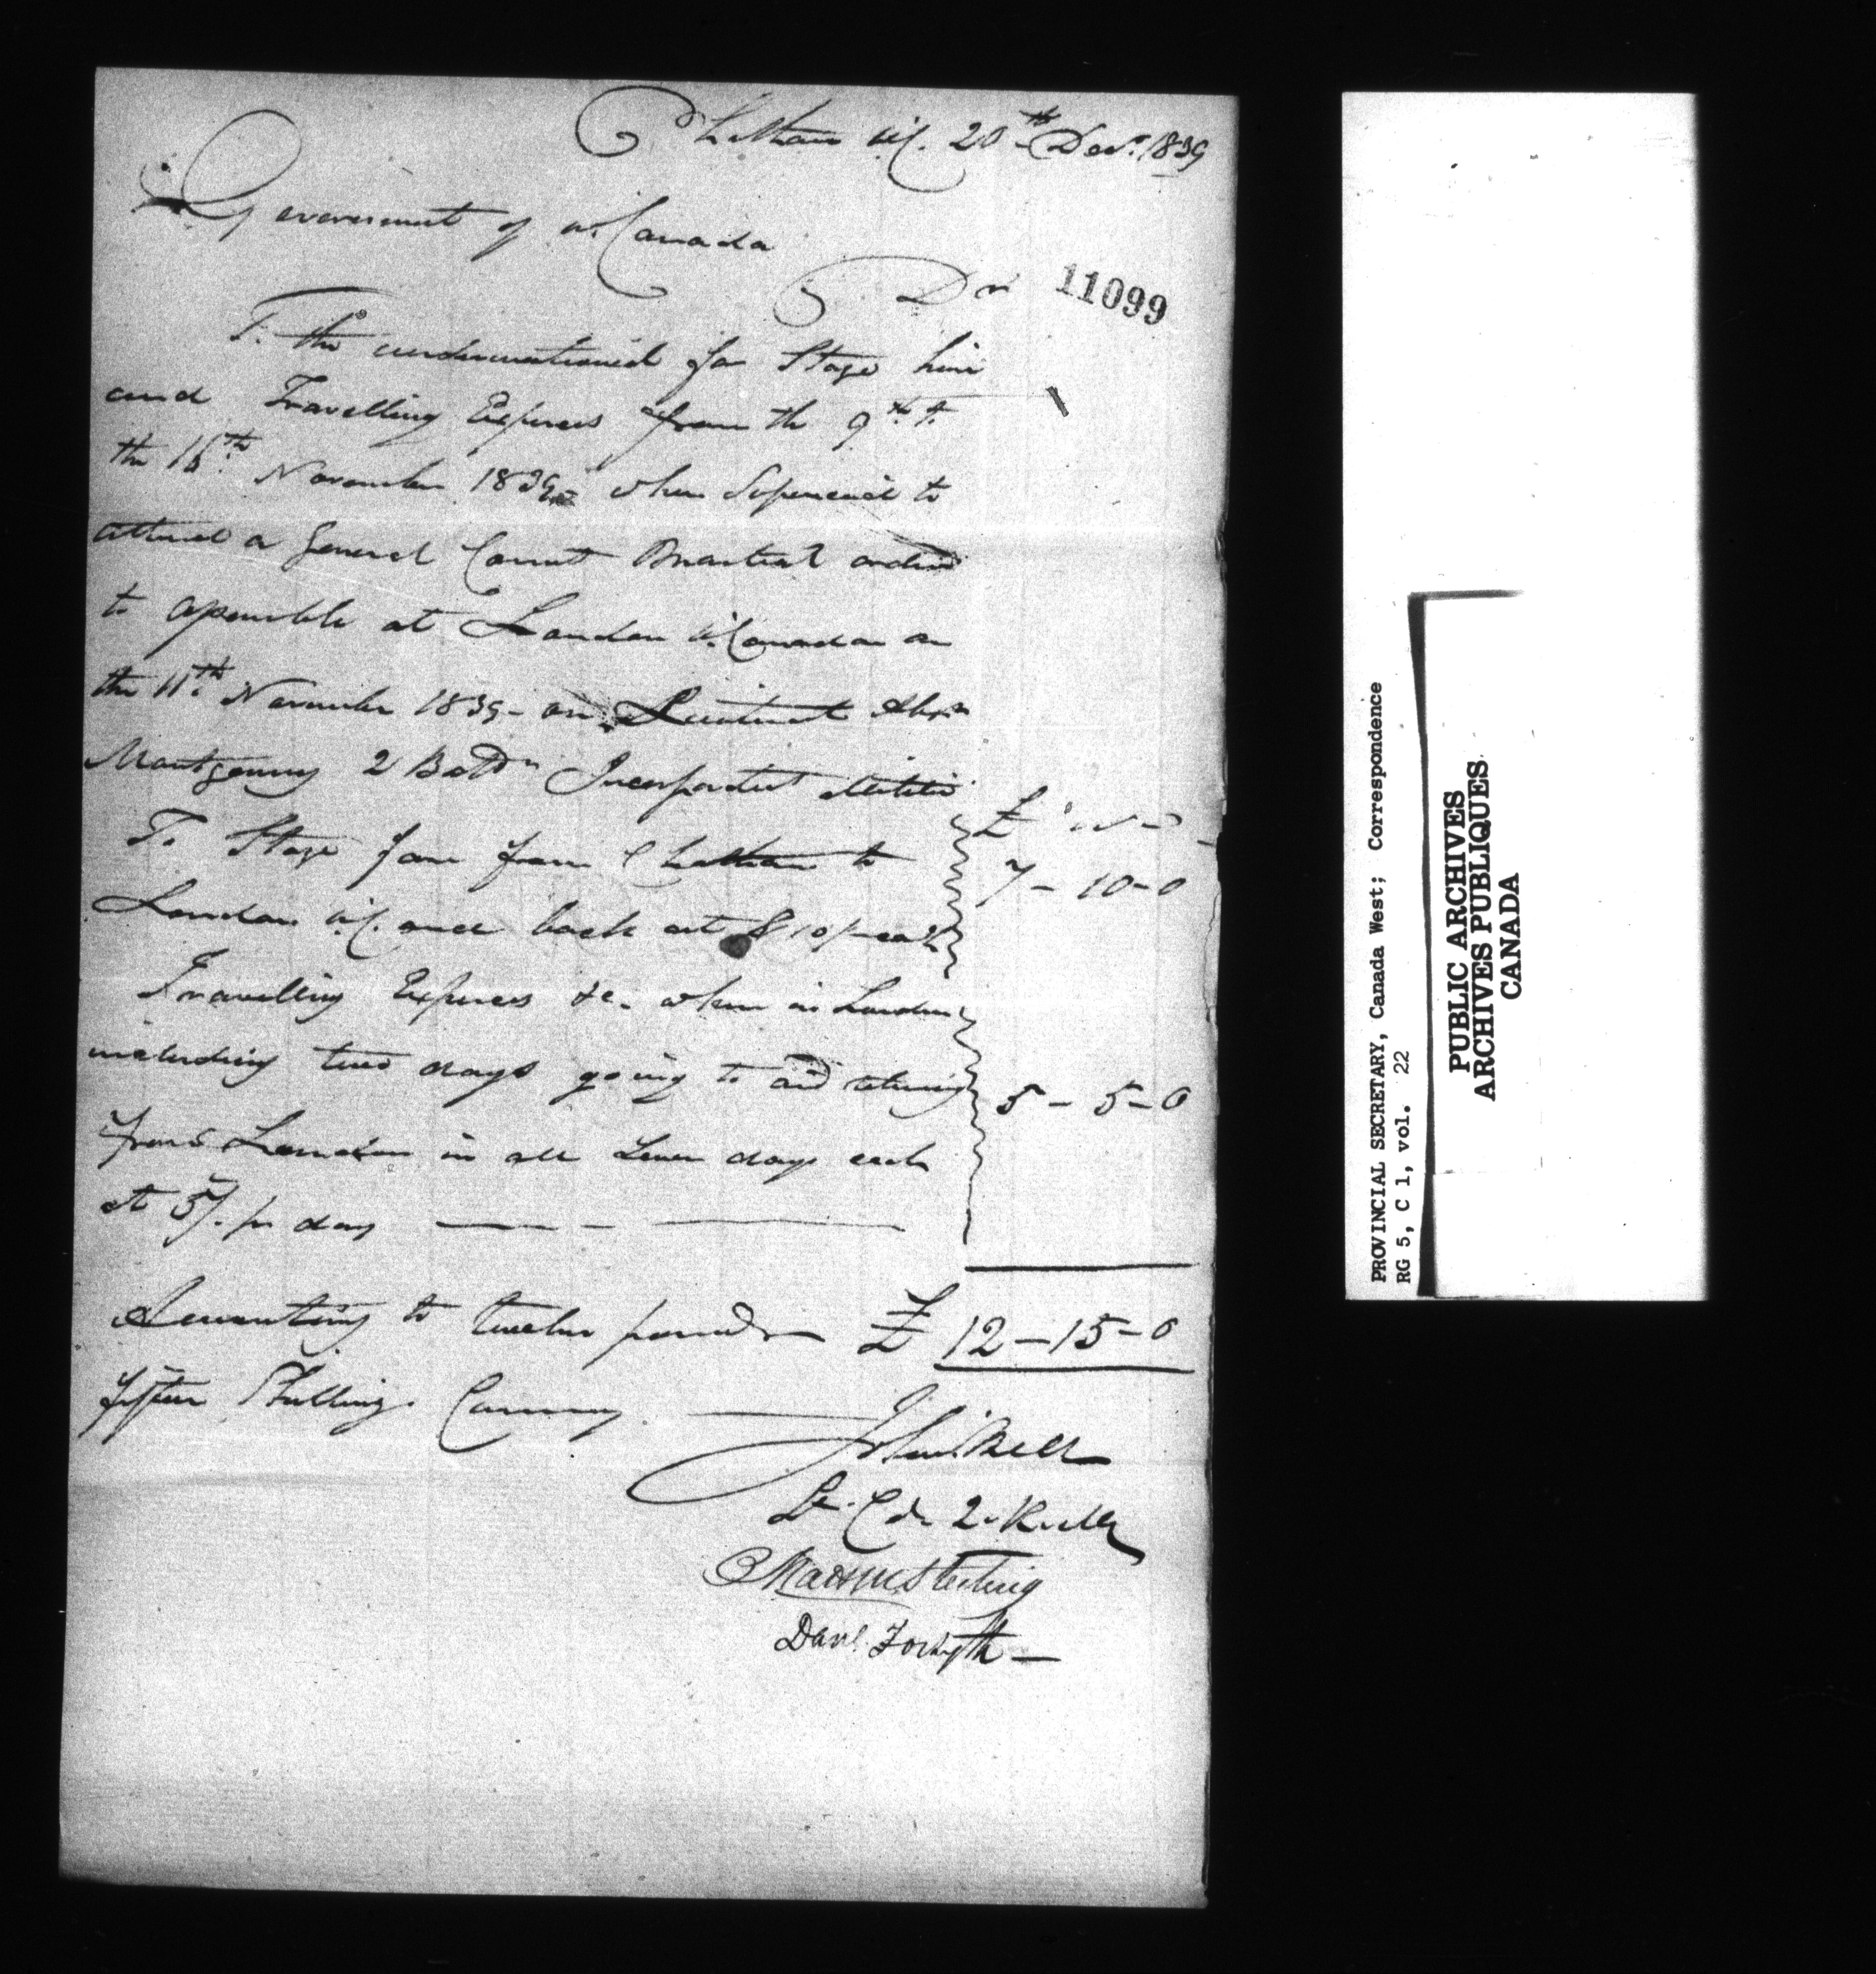 Chatham U.C. 20th Decr. 1839
Government of U. Canada
Dr 11099
To the undermentioned for Stage hire
and Travelling Expences from the 9th to
the 16th November 1839 when Supenied to
attend a General Court Martial ordered
to assemble at London U. Canada on
the 11th November 1839 - on Lieutenant Alexr
Montgomery 2 Battn Incorporated Militia
£
To Stage fare from Chatham to
7 - 10 - 0
London U.C. and back at $10/ each
Travelling Expences &c. when in London
including two days going to and returning
5 - 5 - 0
from London in all seven days each
at 5/. pr day
Amounting to twelve pounds £ 12 - 15 - 0
fifteen Shillings Currency.
John Bell
Lt. Col. 2 Kent
Sterling
Danl. Forsyth
PROVINCIAL SECRETARY, Canada West; Correspondence
RG 5, C 1, vol. 22
PUBLIC ARCHIVES
ARCHIVES PUBLIQUES
CANADA